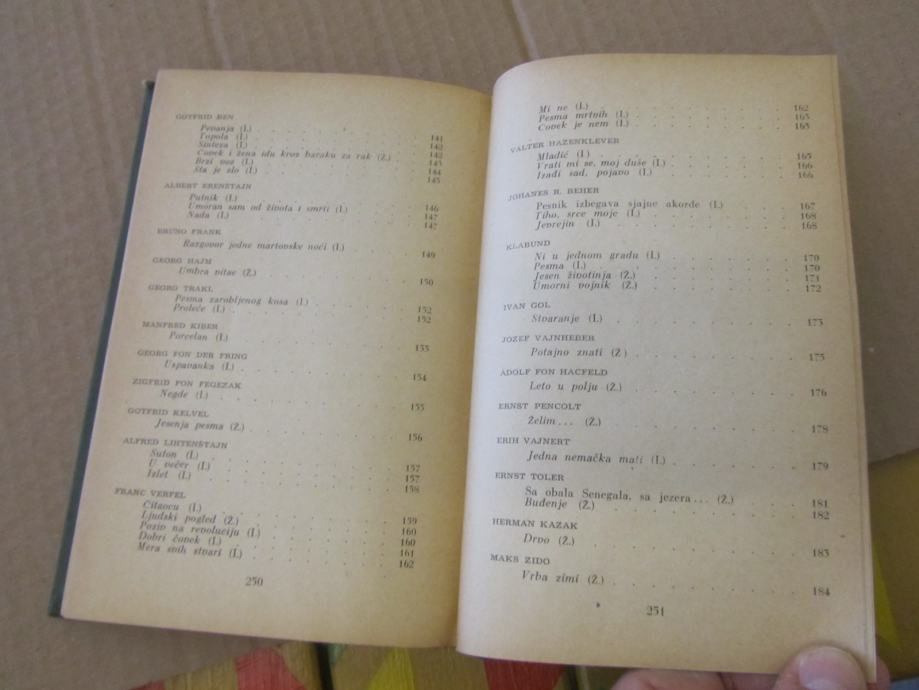 GOTFRID BEN
Pevanja (I.) 141
Topola (I.) 142
Sinteza (I.) 142
Čovek i žena idu kroz baraku za rak (Ž.) 143
Brzi voz (I.) 144
Šta je zlo (I.) 145
ALBERT ERENŠTAJN
Putnik (I.) 146
Umoran sam od života i smrti (I.) 147
Nada (I.) 147
BRUNO FRANK
Razgovor jedne martovske noći (I.) 149
GEORG HAJM
Umbra vitae (Ž.) 150
GEORG TRAKL
Pesma zarobljenog kosa (I.) 152
Proleće (I.) 152
MANFRED KIBER
Porcelan (I.) 153
GEORG FON DER FRING
Uspavanka (I.) 154
ZIGFRID FON FEGEZAK
Negde (I.) 155
GOTFRID KELVEL
Jesenja pesma (Ž.) 156
ALFRED LIHTENŠTAJN
Suton (I.) 157
U večer (I.) 157
Izlet (I.) 158
FRANC VERFEL
Čitaocu (I.) 159
Ljudski pogled (Ž.) 160
Poziv na revoluciju (I.) 160
Dobri čovek (I.) 161
Mera svih stvari (I.) 162
250
Mi ne (I.) 162
Pesma mrtvih (I.) 163
Čovek je nem (I.) 163
VALTER HAZENKLEVER
Mladić (I.) 165
Vrati mi se, moj duše (I.) 166
Izađi sad, pojavo (I.) 166
JOHANES R. BEHER
Pesnik izbegava sjajne akorde (I.) 167
Tiho, srce moje (I.) 168
Jevrejin (I.) 168
KLABUND
Ni u jednom gradu (I.) 170
Pesma (I.) 170
Jesen životinja (Ž.) 171
Umorni vojnik (Ž.) 172
IVAN GOL
Stvaranje (I.) 173
JOZEF VAJNHEBER
Potajno znati (Ž) 175
ADOLF FON HACFELD
Leto u polju (Ž.) 176
ERNST PENCOLT
Želim... (Ž.) 178
ERIH VAJNERT
Jedna nemačka mati (I.) 179
ERNST TOLER
Sa obala Senegala, sa jezera... (Ž.) 181
Buđenje (Ž.) 182
HERMAN KAZAK
Drvo (Ž.) 183
MAKS ZIDO
Vrba zimi (Ž.) 184
251